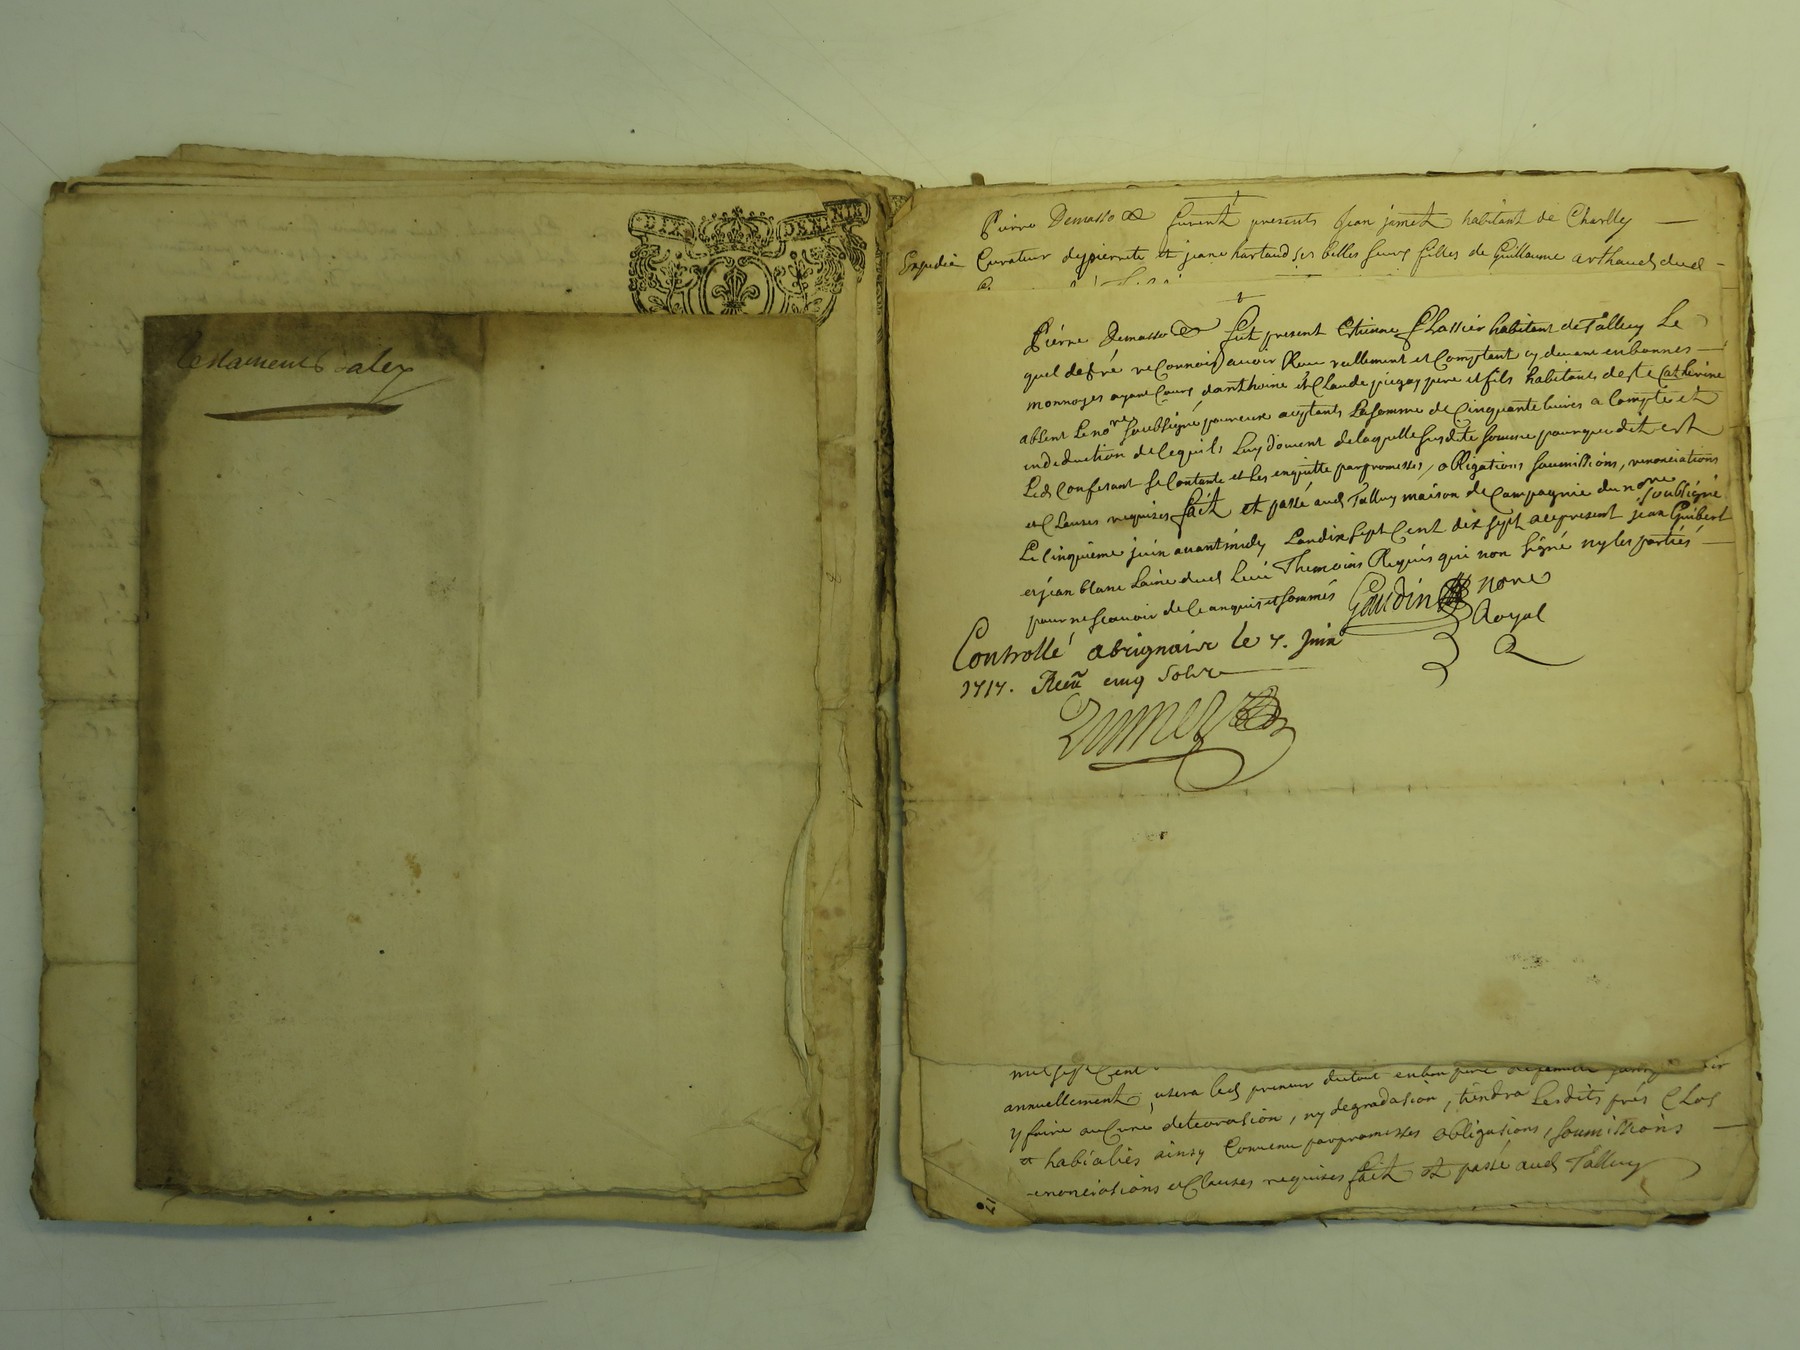 testament
Pierre Demasso furent presents Jean jamet habitant de Charlly
Expedié Curateur depierrete et jeane hartaud ses belles seurs filles de Guillaume arthaud dud
Piérre Demasso fut present Estienne Chassier habitant de Talluy Le
quel de gré reConnois avoir Receu reellement et Comptant cy devant en bonnes
monnoyes ayant Cours d'anthoine et Claude pere et fils habitants de ste Catherine
absent le nore soubsigné pour eux aceptants La somme de Cinquante livres a Compte et
en deduction de Ce quils Luy doivent de laquelle susdite somme pour que dit est
Led Confesant se Contante et Les enquitte par promesses, obligations soumissions, renonciations
et Clauses requises fait et passé aud Talluy maison de Campagnie du nore soubsigné
Le Cinquieme juin avant midy L'an dix sept Cent dix sept au present jean Guibert
et jean blanc Laine dud Lieu Themoins Requis qui non signé ny les partiés
pour ne scavoir de Ce anquis et sommés Gaudin nore
Royal
Controllé a brignaix le 7. Juin
1717. Receu cinq sols
mil sept Cent
annuellement, usera led preneur du tout en bon pere
y faire auCune deteorasion, ny degradasion, tiendra Lesdits prés Clos
et habialiés ainsy Convenu par promesses obligasions, soumissions
renonciasions et Clauses requises fait et passé aud Talluy